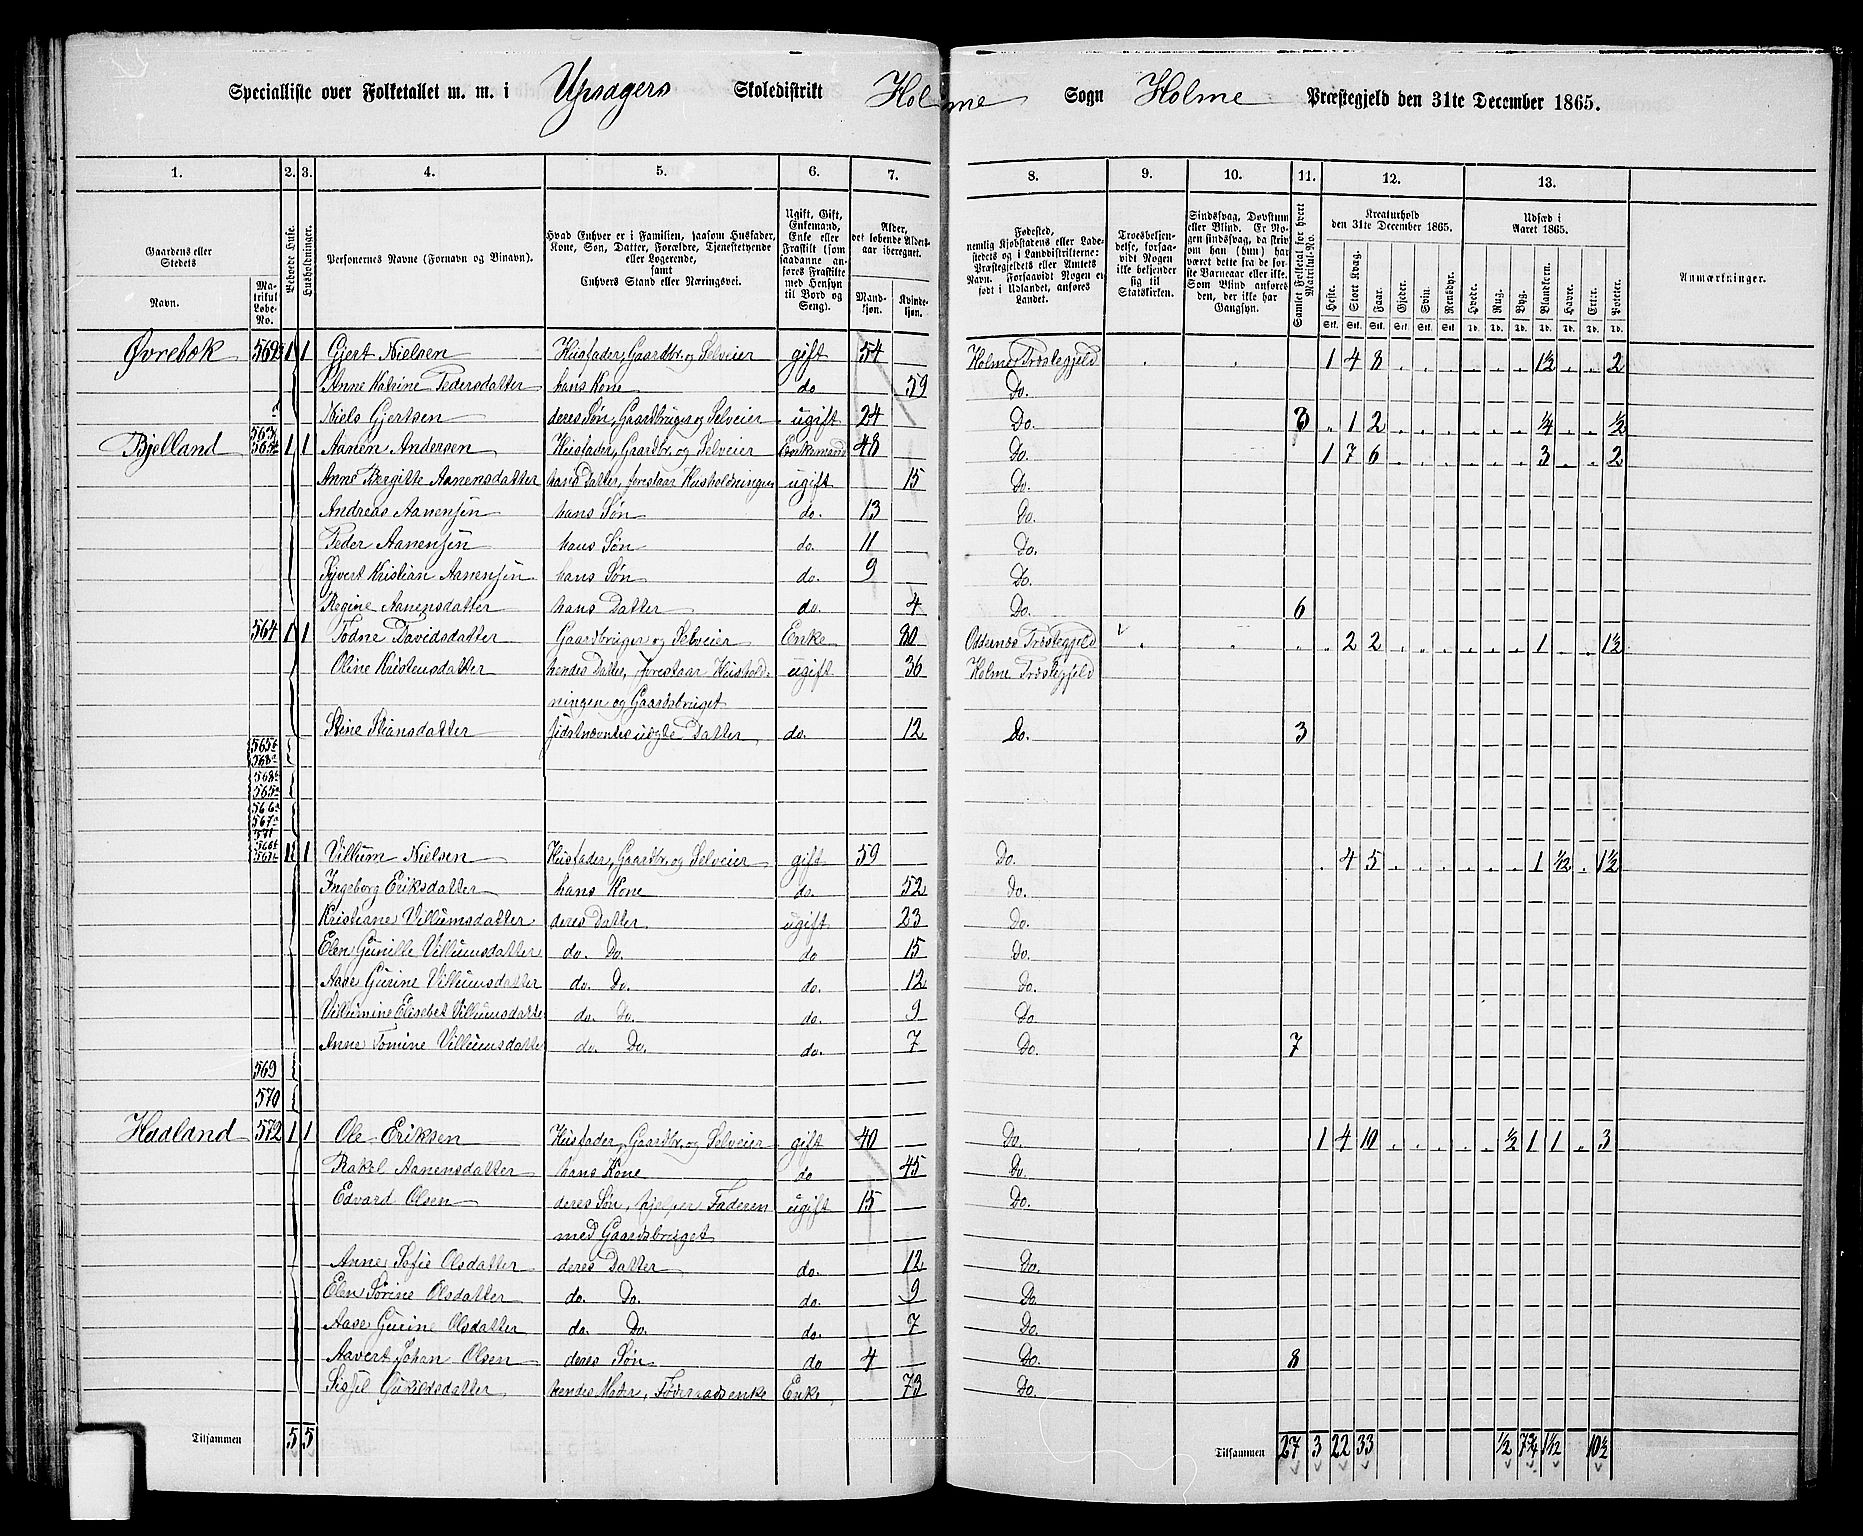 Specialliste over Folketallet m. m. i Upsagers Skoledistrikt Holme Sogn Holme Præstegjeld den 31te December 1865.
1. 2. 3. 4. 5. 6. 7. 8. 9. 10. 11. 12. 13.
Gaardens eller Stedets
Navn.
Matrikul Løbe-No.
Beboede Huse.
Husholdninger.
Personernes Navne (Fornavn og Binavn).
Hvad Enhver er i Familien, saasom Husfader, Kone, Søn, Datter, Forældre, Tjenestetyende eller Logerende, samt Enhvers Stand eller Næringsvei.
Ugift, Gift, Enkemand, Enke eller Fraskilt (som saadanne anføres Fraskilte med Hensyn til Bord og Seng).
Alder, det løbende Aldersaar iberegnet.
Mandkjøn. Kvindekjøn.
Fødested, nemlig Kjøbstadens eller Ladestedets og i Landdistrikterne: Præstegjeldets eller Amtets Navn. Forsaavidt Nogen er født i Udlandet, anføres Landet.
Troesbekjendelse, forsaavidt Nogen ikke bekjender sig til Statskirken.
Sindssvag, Døvstum eller Blind. Er Nogen sindssvag, da skriv om han (hun) har været dette fra de første Barneaar eller ikke. Som Blind anføres den, der ikke har Gangsyn.
Samlet Folketal for hvert Matrikul-No.
Kreaturhold den 31te December 1865.
Heste. Stort Kvæg. Faar. Gjeder. Svin. Rensdyr.
Udsæd i Aaret 1865.
Hvede. Rug. Byg. Blandkorn. Havre. Erter. Poteter.
Anmærkninger.
Øvrebøk 562 1 1 Gjert Nielsen Husfader, Gaardbr. og Selveier gift 54 Holme Præstegjeld 1 4 8 1½ 2
Anne Katrine Pedersdatter hans Kone do 59 Do.
Niels Gjertsen deres Søn, Gaardbruger og Selveier ugift 24 Do 3 1 2 ¼ ½
Bjelland 563 1 1 Aanen Andersen Husfader, Gaardbr. og Selveier Enkemand 48 Do. 1 7 6 3 2
Anne Bergitte Aanensdatter hans Datter, forestaar Husholdningen ugift 15 Do.
Andreas Aanensen hans Søn do. 13 Do.
Peder Aanensen hans Søn do. 11 Do.
Syvert Kristian Aanensen hans Søn do. 9 Do.
Regine Aanensdatter hans Datter do. 4 Do. 6
564 1 1 Todne Davidsdatter Gaardbruger og Selveier Enke 80 Oddernæs Præstegjeld 2 2 1 1½
Oline Kristensdatter hendes Datter, forestaar Hushold- ugift 36 Holme Præstegjeld
ningen og Gaardsbruget
Stine Stiansdatter sidstnævntes uægte Datter do. 12 Do. 3
565
568
568
565
566
567
571
566
567 1 1 Villum Nielsen Husfader, Gaardbr. og Selveier gift 59 Do. 4 5 1 ½ 1½
Ingeborg Eriksdatter hans Kone do 52 Do.
Kristiane Villumsdatter deres Datter ugift 23 Do.
Elen Gunille Villumsdatter do. Do. do 15 Do.
Aase Gurine Villumsdatter do. Do. do. 12 Do.
Villumine Elisebet Villumsdatter do. Do. do. 9 Do
Anne Tomine Villumsdatter do. Do. do. 7 Do. 7
569
570
Haaland 572 1 1 Ole Eriksen Husfader, Gaardbr. og Selveier gift 40 Do. 1 4 10 ½ 1 1 3
Rakel Aanensdatter hans Kone do 45 Do.
Edvard Olsen deres Søn, hjelper Faderen ugift 15 Do.
med Gaardsbruget
Anne Sofie Olsdatter deres Datter do. 12 Do.
Elen Sørine Olsdatter do. Do. do. 9 Do.
Aase Gurine Olsdatter do. Do. do. 7 Do.
Aavert Johan Olsen deres Søn do 4 Do. 8
Sissel Gunildsdatter hendes Moder, Føderaadsenke Enke 73 Do.
Tilsammen 5 5 Tilsammen 27 3 22 33 ½ 7¾ 1½ 10½